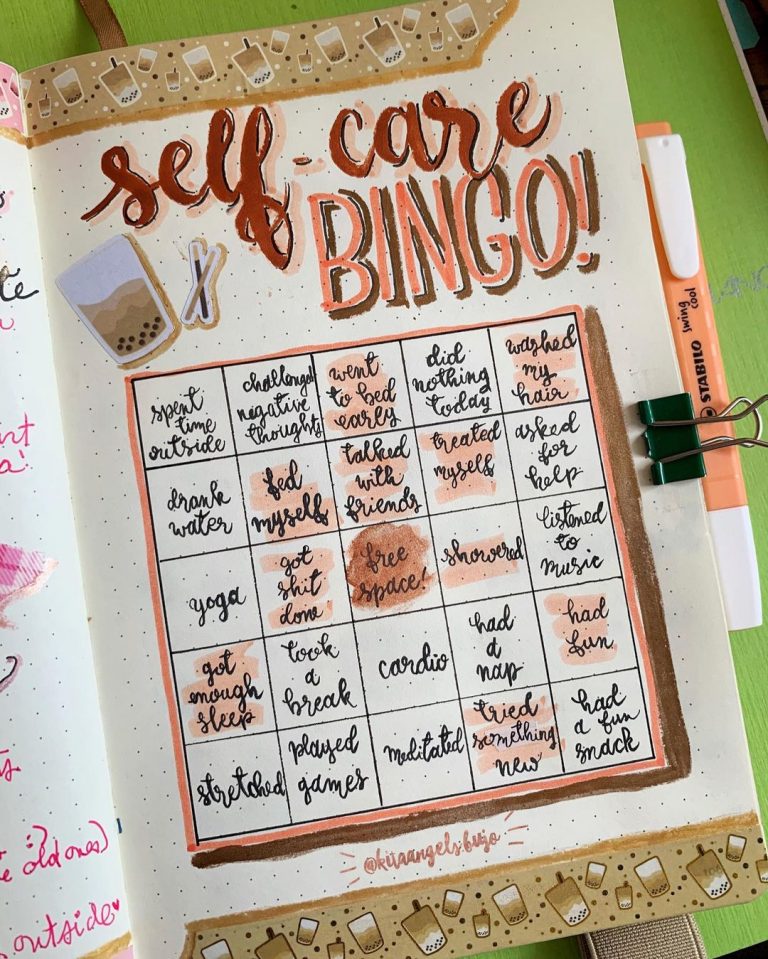 self-care
BINGO!
spent
time
outside
challenged
negative
thoughts
went
to bed
early
did
nothing
today
washed
my
hair
drank
water
fed
myself
talked
with
friends
treated
myself
asked
for
help
yoga
got
shit
done
free
space!
showered
listened
to
music
got
enough
sleep
took
a
break
cardio
had
a
nap
had
fun
stretched
played
games
meditated
tried
something
new
had
a fun
snack
@kitaangels.bujo
STABILO swing
cool
old ones)
outside